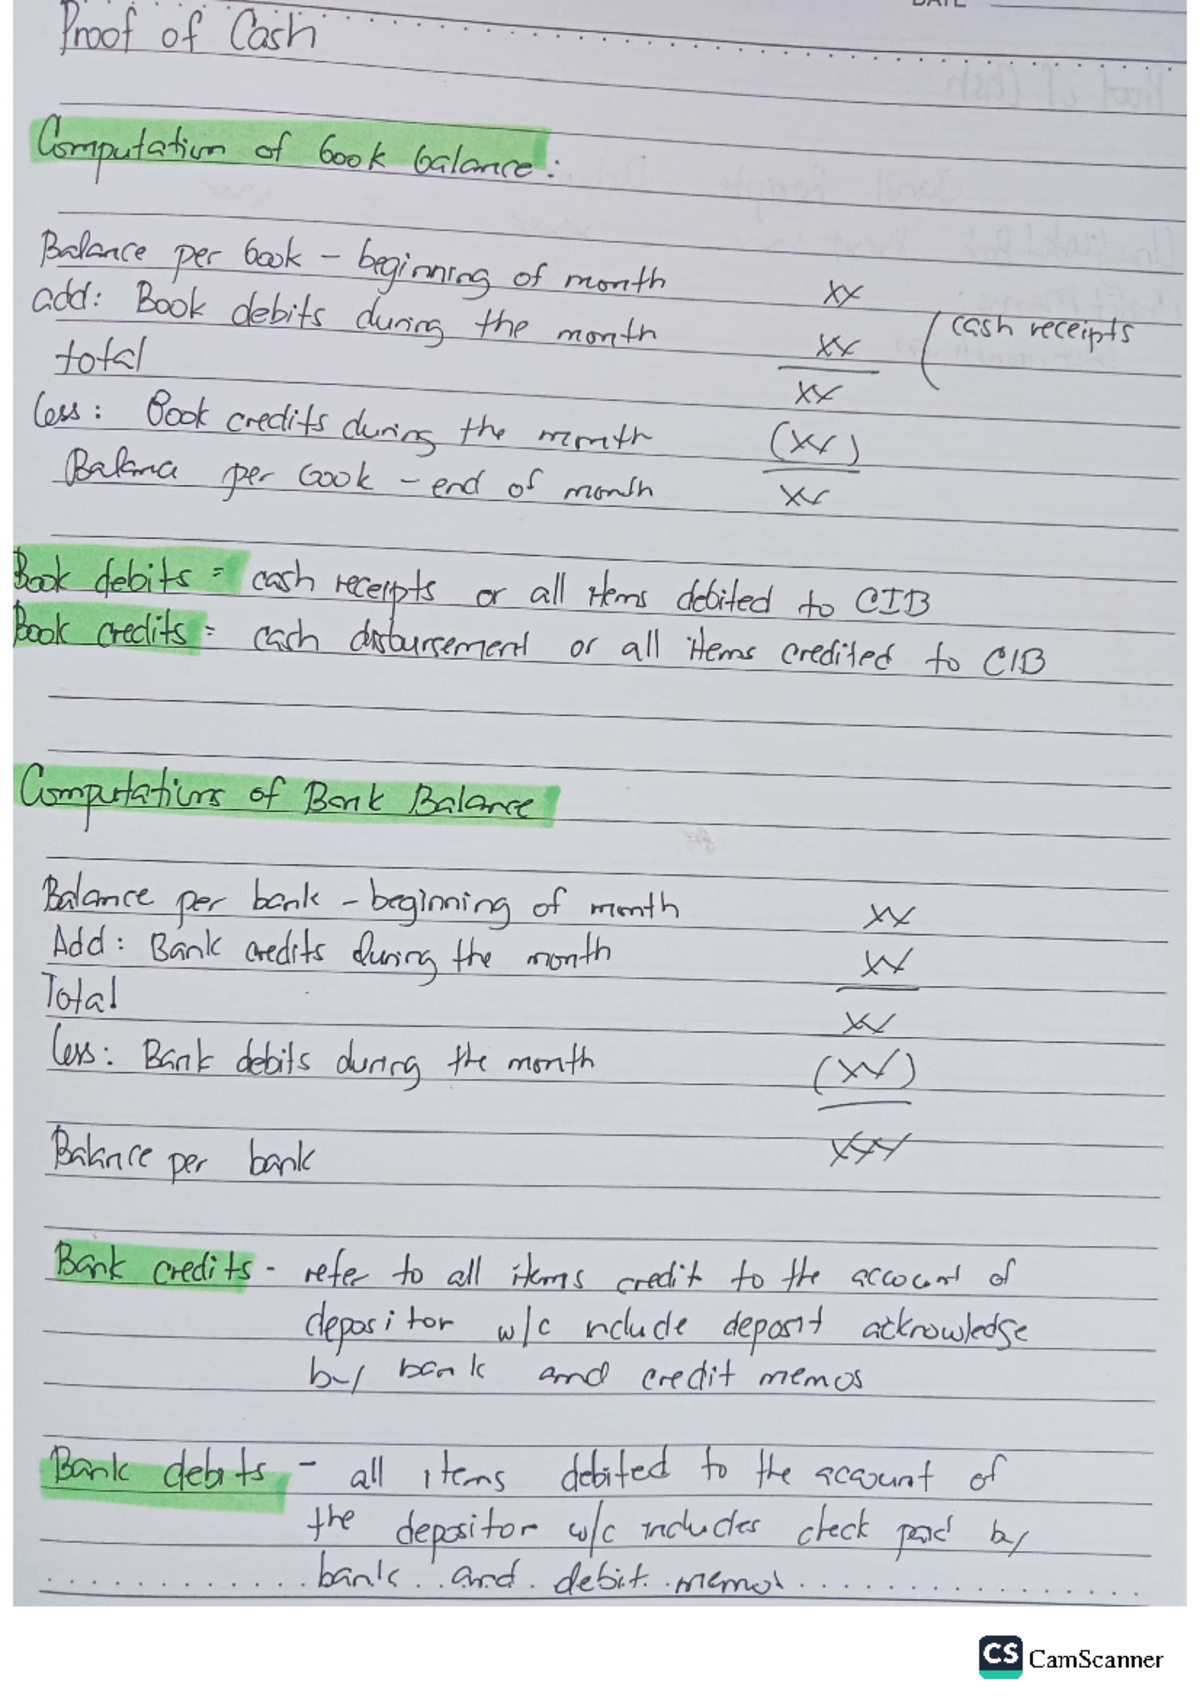 DATE
Proof of Cash
Computation of book balance:
Balance per book - beginning of month xx
add: Book debits during the month xx cash receipts
total xx
less: Book credits during the month (xx)
Balance per book - end of month xx
Book debits = cash receipts or all items debited to CIB
Book credits = cash disbursement or all items credited to CIB
Computations of Bank Balance
Balance per bank - beginning of month xx
Add: Bank credits during the month xx
Total xx
less: Bank debits during the month (xx)
Balance per bank xxx
Bank credits - refer to all items credit to the account of
depositor w/c include deposit acknowledge
by bank and credit memos
Bank debits - all items debited to the account of
the depositor w/c includes check paid by
bank and debit memos
CS CamScanner